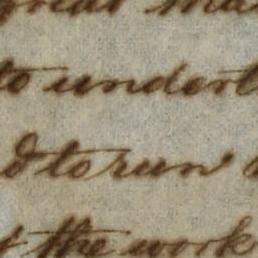 great
to undert
d to run
the work